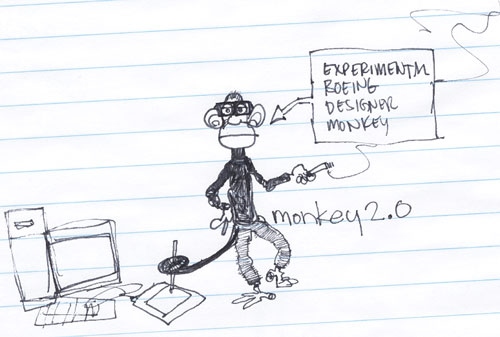 EXPERIMENTAL
ROEING
DESIGNER
MONKEY
monkey 2.0